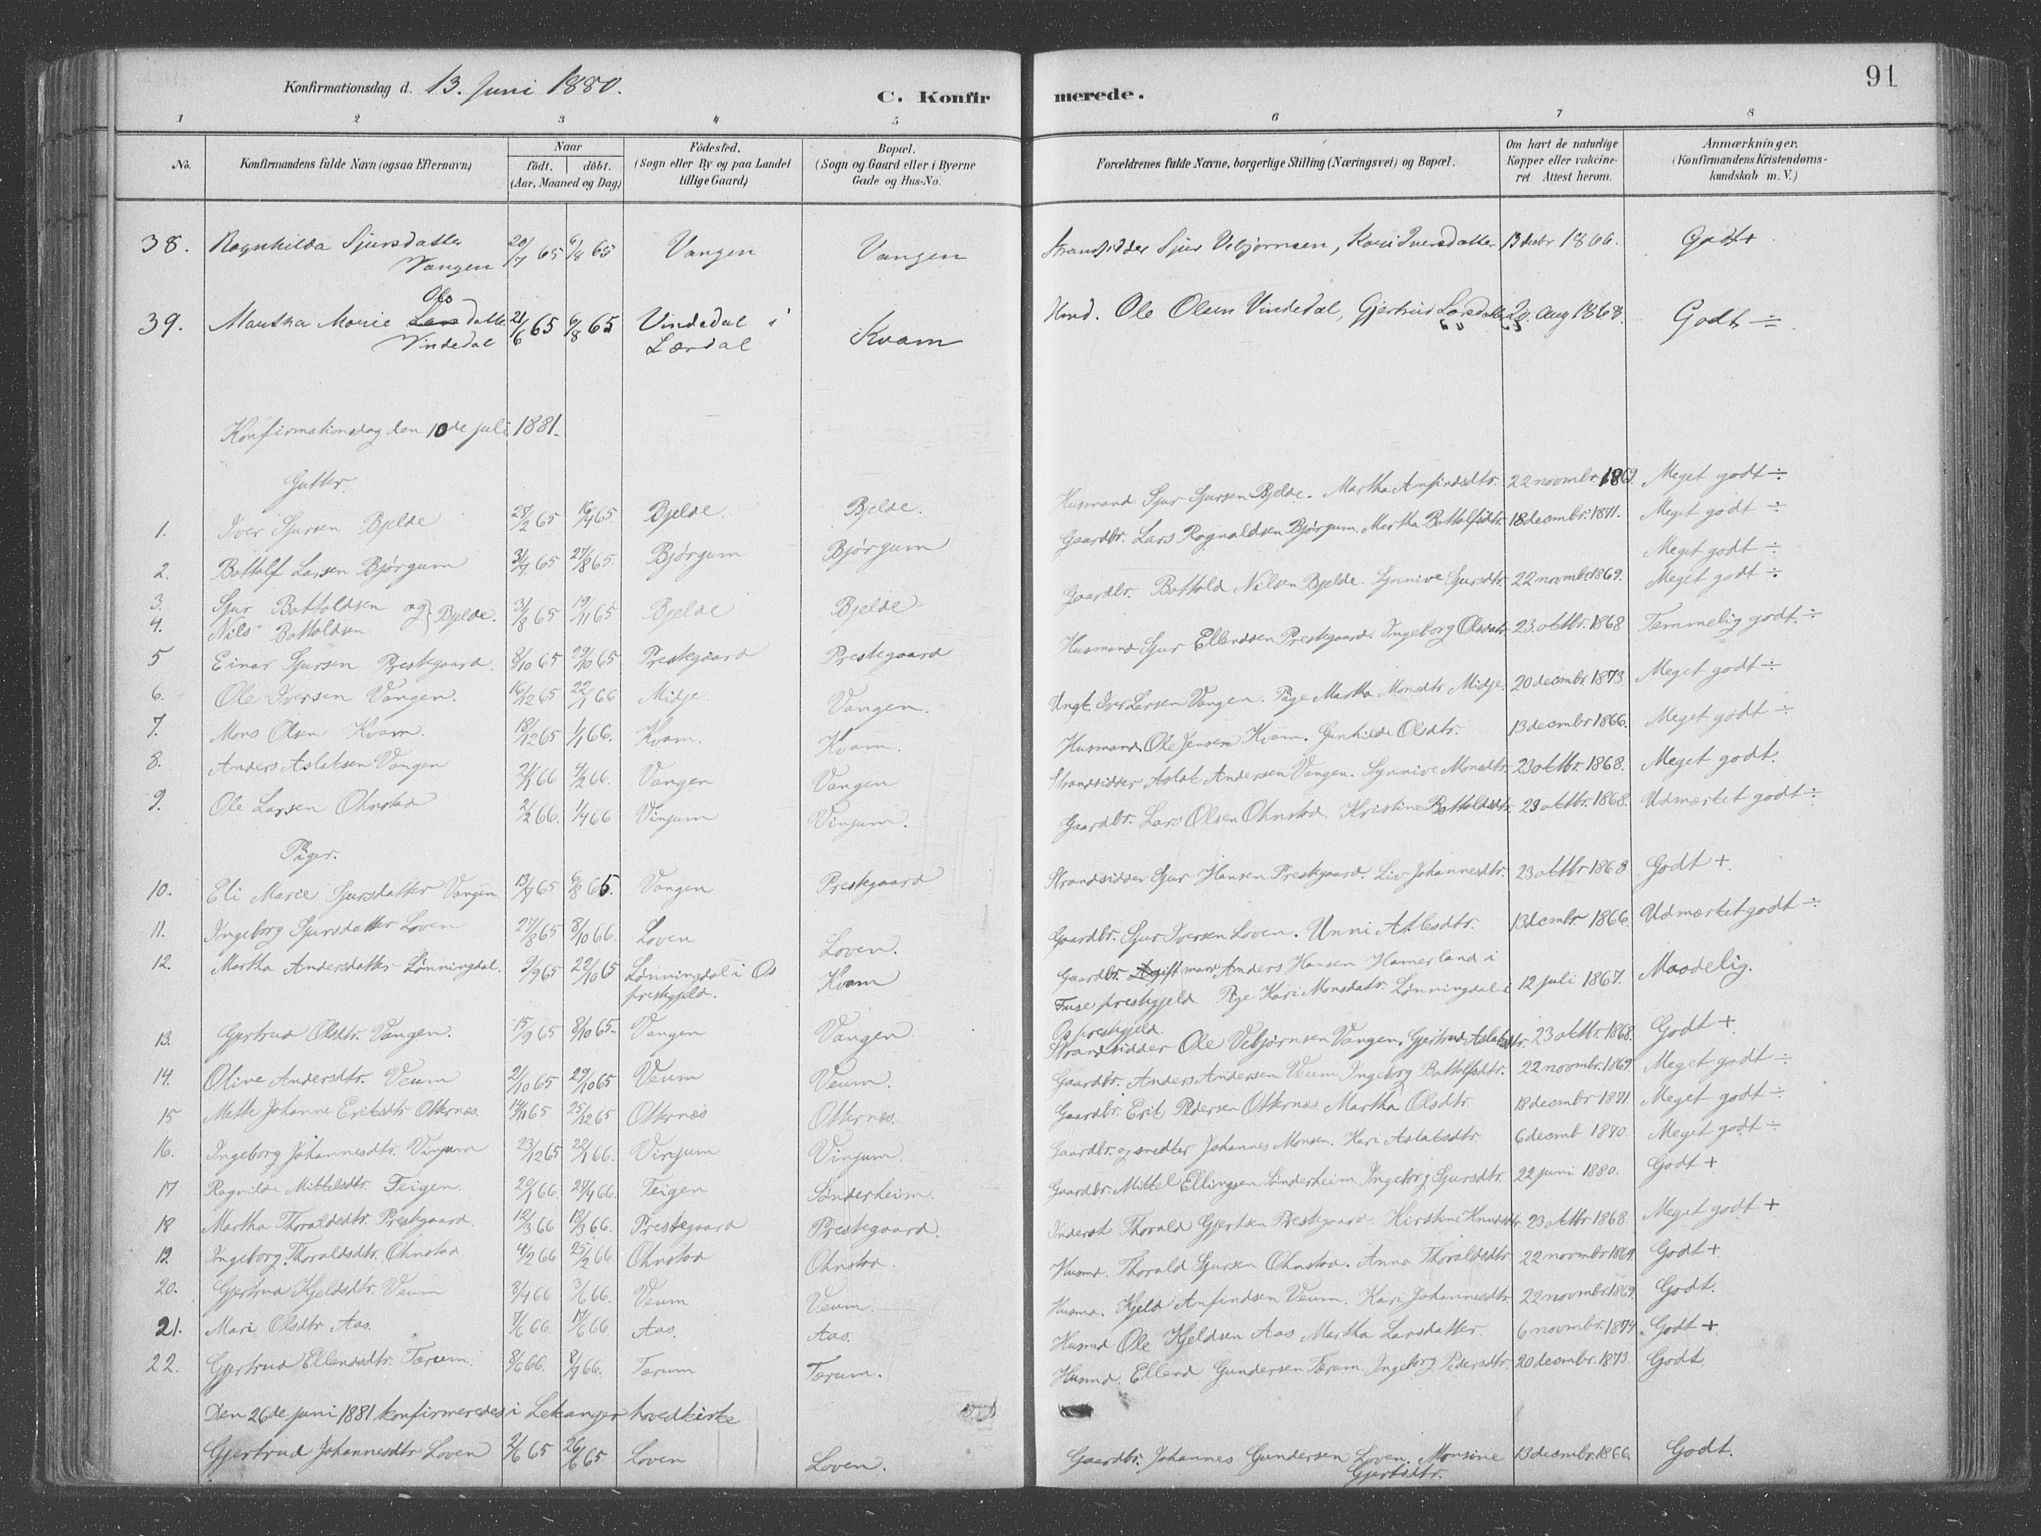 Konfirmationsdag d. 13. Juni 1880.
C. Konfir merede.
91
1 2 3 4 5 6 7 8
No. Konfirmandens fulde Navn (ogsaa Efternavn) Naar født. døbt. (Aar, Maaned og Dag) Fødested. (Sogn eller By og paa Landet tillige Gaard) Bopæl. (Sogn og Gaard eller i Byerne Gade og Hus-No. Forældrenes fulde Navne, borgerlige Stilling (Næringsvei) og Bopæl. Om havt de naturlige Kopper eller vakcineret Attest herom. Anmærkninger. (Konfirmandens Kristendomskundskab m. V.)
38. Ragnhilda Sjursdatter Vangen 20/7 65 6/8 65 Vangen Vangen Strandsidder Sjur Vibjørnsen, Kari Iversdatter 13 decbr 1866. Godt +
39. Martha Marie Ols datter Vindedal 21/6 65 6/8 65 Vindedal i Lærdal Kvam Husmd. Ole Olsen Vindedal, Gjertrud Larsdatter Aug 1868. Godt ÷
Konfirmationsdag den 10de juli 1881.
Gutter.
1. Iver Sjursen Bjelde 27/2 65 16/4 65 Bjelde. Bjelde. Husmand Sjur Sjursen Bjelde. Martha Anfindsdtr. 22 novmbr. 1869. Meget godt ÷
2. Bottolf Larsen Bjørgum 31/7 65 27/8 65. Bjørgum Bjørgum Gaardbr. Lars Ragnaldsen Bjørgum. Martha Bottolfsdtr. 18 decmbr. 1871. Meget godt ÷
3. Sjur Bottoldsen og} Bjelde. 31/8 65 19/11 65 Bjelde Bjelde Gaardbr. Bottold Nilsen Bjelde. Synnive Sjursdtr. 22 novmbr 1869. Meget godt ÷
4. Nils Bottoldsen Meget godt ÷
5 Einar Sjursen Prestegaard. 8/10 65 29/10 65 Prestegaard Prestegaard Husmand Sjur Ellendsen Prestegaard. Ingeborg Olsdatr. 23 oktbr. 1868 Temmelig godt. ÷
6. Ole Iversen Vangen. 16/12 65 22/1 66 Midje. Vangen. Ungk. Iver Larsen Vangen. Pige Martha Monsdtr. Midje. 20 decmbr 1873. Meget godt ÷
7. Mons Olsen Kvam. 18/12 65 1/1 66. Kvam. Kvam. Husmand Ole Jensen Kvam. Gunhilde Olsdtr. 13 decmbr 1866. Meget godt ÷
8. Anders Aslaksen Vangen 21/1 66 4/2 66. Vangen Vangen Strandsidder Aslak Andersen Vangen. Synnive Monsdtr. 23 oktbr. 1868. Meget godt.
9. Ole Larsen Ohnstad 2/2 66. 1/4 66 Vinjum Vinjum. Gaardbr. Lars Olsen Ohnstad. Kristine Bottoldsdtr. 23 oktbr. 1868. Udmærket godt ÷
Piger.
10. Eli Marie Sjursdatter Vangen 13/7 65 6/8 65. Vangen Prestegaard Strandsidder Sjur Hansen Prestegaard. Liv Johannesdtr. 23 oktbr 1868 Godt +
11. Ingeborg Sjursdatter Loven 27/8 65 8/10 66. Loven Loven. Gaardbr. Sjur Iversen Loven. Unni Atlesdtr. 13 decmbr 1866. Udmærket godt ÷
12. Martha Andersdatter Lønningdal. 3/9 65 22/10 65 Lønningdal i Os prestgjeld. Kvam Gaardbr. Anders Hansen Hamerland i Fuse prestgjeld Pige Kari Monsdatr. Lønningdal i Os prestgjeld. 12 juli 1867. Maadelig.
13. Gjertrud Olsdtr. Vangen. 15/9 65 8/10 65. Vangen Vangen Strandsidder Ole Vibjørnsen Vangen, Gjertrud Aslaksdtr. 23 oktbr. 1868. Godt +
14. Oline Andersdtr. Veum 2/10 65 29/10 65 Veum Veum. Gaardbr. Anders Andersen Veum. Ingeborg Bottolfsdtr. 22 novmbr. 1869. Meget godt ÷
15 Mette Johanne Eriksdtr Otternæs. 14/11 65 25/12 65 Otternæs Otternæs. Gaardbr. Erik Pedersen Otternæs. Martha Olsdtr. 18 decmbr 1871. Meget godt ÷
16. Ingeborg Johannesdtr. Vinjum 23/12 65 22/1 66. Vinjum Vinjum. Gaardbr. og snedker Johannes Monsen. Kari Aslaksdtr. 6 decmb 1870. Meget godt ÷
17 Ragnilde Mittelsdtr. Teigen. 20/1 66. 24/4 66. Teigen Sønderheim. Gaardbr. Mittel Ellingsen Sønderheim Ingeborg Sjursdtr. 22 juni 1880. Godt +
18 Martha Thoraldsdtr. Prestgaard. 12/3 66 12/3 66. Prestegaard Prestegaard. Inderst Thorald Gjertsen Prestegaard. Kirstine Knudsdtr 23 oktbr 1868 Meget godt +
19. Ingeborg Thoraldsdtr. Ohnstad. 4/2 66 25/2 66. Ohnstad Ohnstad. Husmd. Thorald Sjursen Ohnstad. Anna Thoraldsdtr 22 novmbr 1869 Godt +
20. Gjertrud Kjeldsdtr. Veum 8/4 66 3/6 66. Veum Veum. Husmd. Kjeld Anfindsen Veum. Kari Johannesdtr 22 novmbr 1869. Godt.
21. Mari Olsdtr Aas. 7/6 66. 17/6 66. Aas. Aas. Husmd Ole Kjeldsen Aas Martha Larsdatter. 6 novmbr. 1874. Godt +
22. Gjertrud Ellendsdtr. Tærum. 8/6 66. 8/7 66. Tærum Tærum. Husmd. Ellend Gundersen Tærum. Ingeborg Pedersdtr. 20 desmbr. 1873. Godt
Den 26de juni 1881 konfirmeredes i Lekanger hovedkirke
Gjertrud Johannesdtr Loven 2/6 65 26/6 65 Loven Loven. Gaardbr. Johannes Gundersen Loven. Monsine Gjertsdtr. 13 decmbr. 1866. Godt.